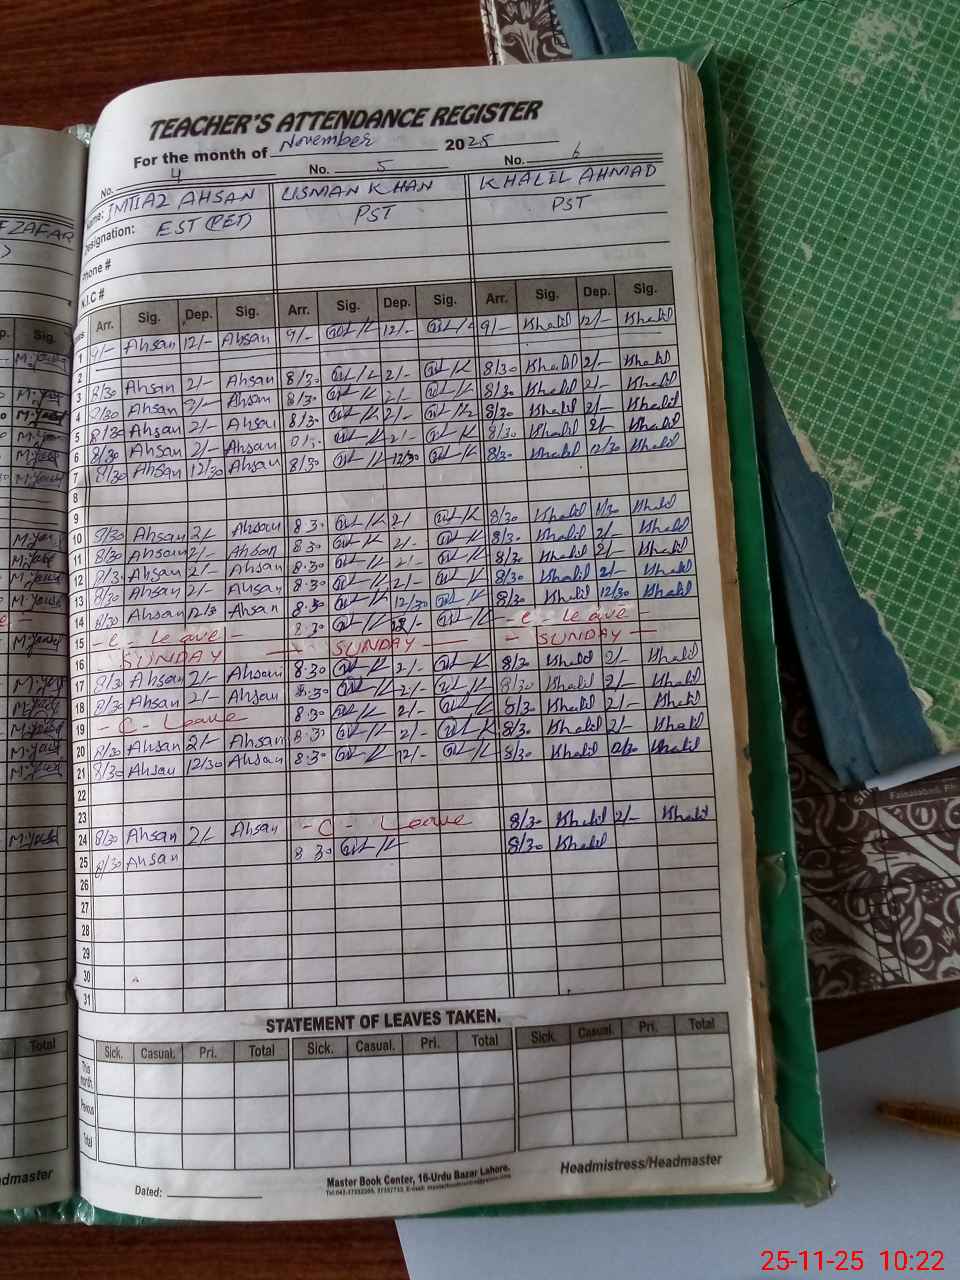 TEACHER'S ATTENDANCE REGISTER
For the month of November 2025
No. 4 No. 5 No. 6
Name: IMTIAZ AHSAN USMAN KHAN KHALIL AHMAD
Designation: EST (PET) PST PST
Phone #
N.I.C #
Arr. Sig. Dep. Sig. Arr. Sig. Dep. Sig. Arr. Sig. Dep. Sig.
1 9/- Ahsan 12/- Ahsan 9/- 12/- 9/- Khalil 12/- Khalil
2
3 8/30 Ahsan 2/- Ahsan 8/30 2/- 8/30 Khalil 2/- Khalil
4 8/30 Ahsan 2/- Ahsan 8/30 2/- 8/30 Khalil 2/- Khalil
5 8/30 Ahsan 2/- Ahsan 8/30 2/- 8/30 Khalil 2/- Khalil
6 8/30 Ahsan 2/- Ahsan 2/- 8/30 Khalil 2/- Khalil
7 8/30 Ahsan 12/30 Ahsan 8/30 12/30 8/30 Khalil 12/30 Khalil
8
9
10 8/30 Ahsan 2/- Ahsan 8 30 2/- 8/30 Khalil Khalil
11 8/30 Ahsan 2/- Ahsan 8 30 2/- 8/30 Khalil 2/- Khalil
12 8/30 Ahsan 2/- Ahsan 8:30 2/- 8/30 Khalil 2/- Khalil
13 8/30 Ahsan 2/- Ahsan 8:30 2/- 8/30 Khalil 2/- Khalil
14 8/30 Ahsan 12/30 Ahsan 8:30 12/30 8/30 Khalil 12/30 Khalil
15 - C - Leave - 8:30 - C - Leave -
16 SUNDAY — SUNDAY — - SUNDAY —
17 8/30 Ahsan 2/- Ahsan 8:30 2/- 8/30 Khalil 2/- Khalil
18 8/30 Ahsan 2/- Ahsan 8:30 2/- 8/30 Khalil 2/- Khalil
19 - C - Leave 8:30 2/- 8/30 Khalil 2/- Khalil
20 8/30 Ahsan 2/- Ahsan 8:30 2/- 8/30 Khalil 2/- Khalil
21 8/30 Ahsan 12/30 Ahsan 8:30 12/- 8/30 Khalil Khalil
22
23
24 8/30 Ahsan 2/- Ahsan - C - Leave 8/30 Khalil 2/- Khalil
25 8/30 Ahsan 8 30 8/30 Khalil
26
27
28
29
30
31
STATEMENT OF LEAVES TAKEN.
Sick. Casual. Pri. Total Sick. Casual. Pri. Total Sick. Casual. Pri. Total
This month.
Previous
Total
Dated:
Master Book Center, 16-Urdu Bazar Lahore.
Headmistress/Headmaster
25-11-25 10:22